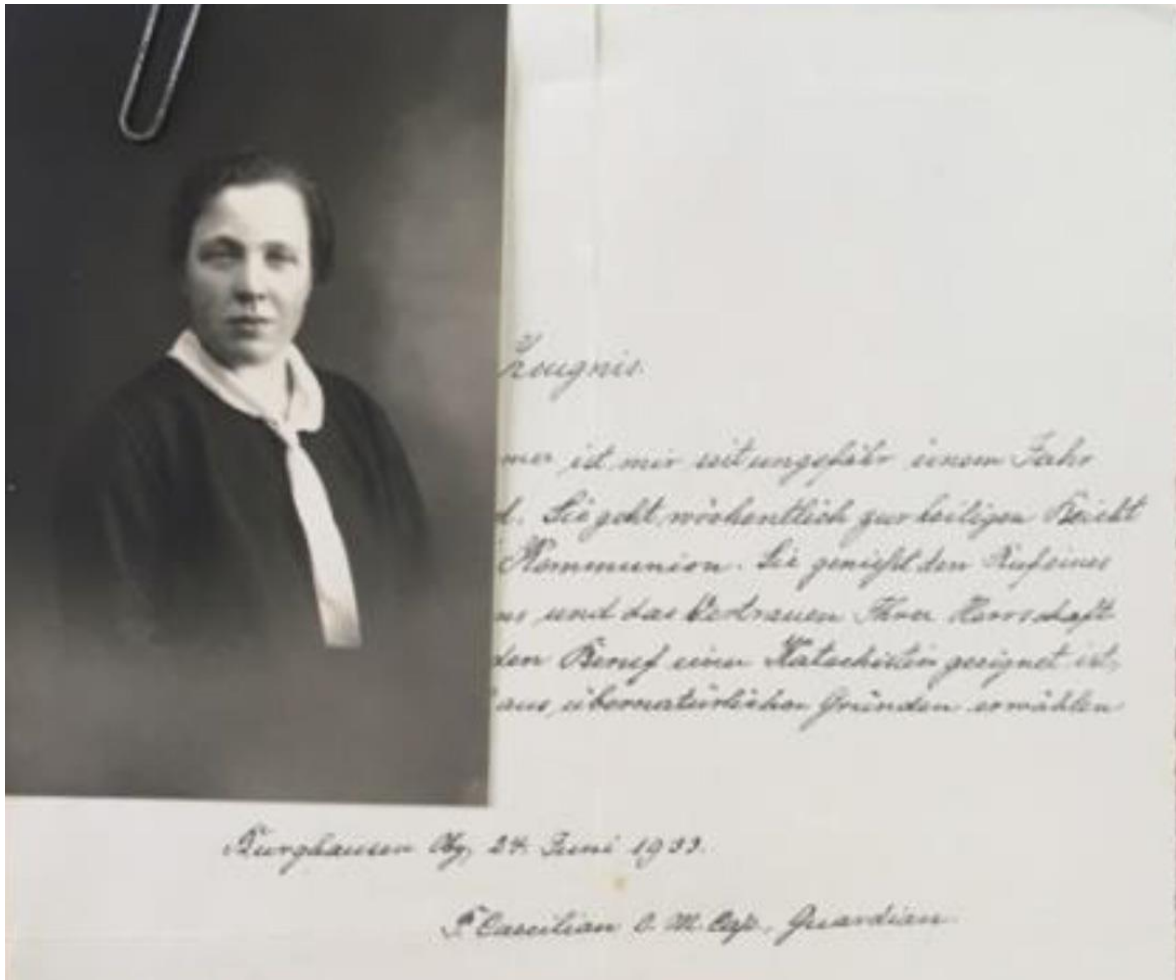 Zeugnis.
mer ist mir seit ungefähr einem Jahr
d. Sie geht wöchentlich zur heiligen Beicht
Kommunion. Sie genießt den Ruf eines
ns und das Vertrauen Ihrer Herrschaft
den Beruf einer Katechistin geeignet ist,
aus übernatürlichen Gründen erwählen
Burghausen Oby, 24. Juni 1933.
P. Caecilian O. M. Cap., Guardian.